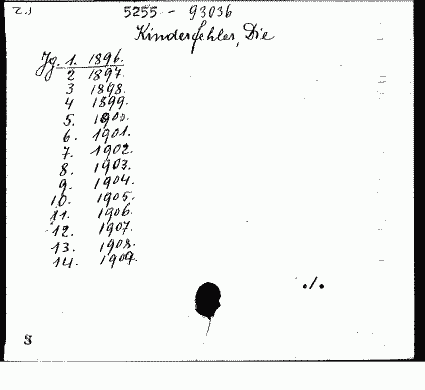 Z.J
5255 - 93036
Kinderfehler, Die
Jg. 1. 1896.
2 1897.
3 1898.
4 1899.
5. 1900.
6. 1901.
7. 1902.
8. 1903.
9. 1904.
10. 1905.
11. 1906.
12. 1907.
13. 1908.
14. 1909.
./.
S